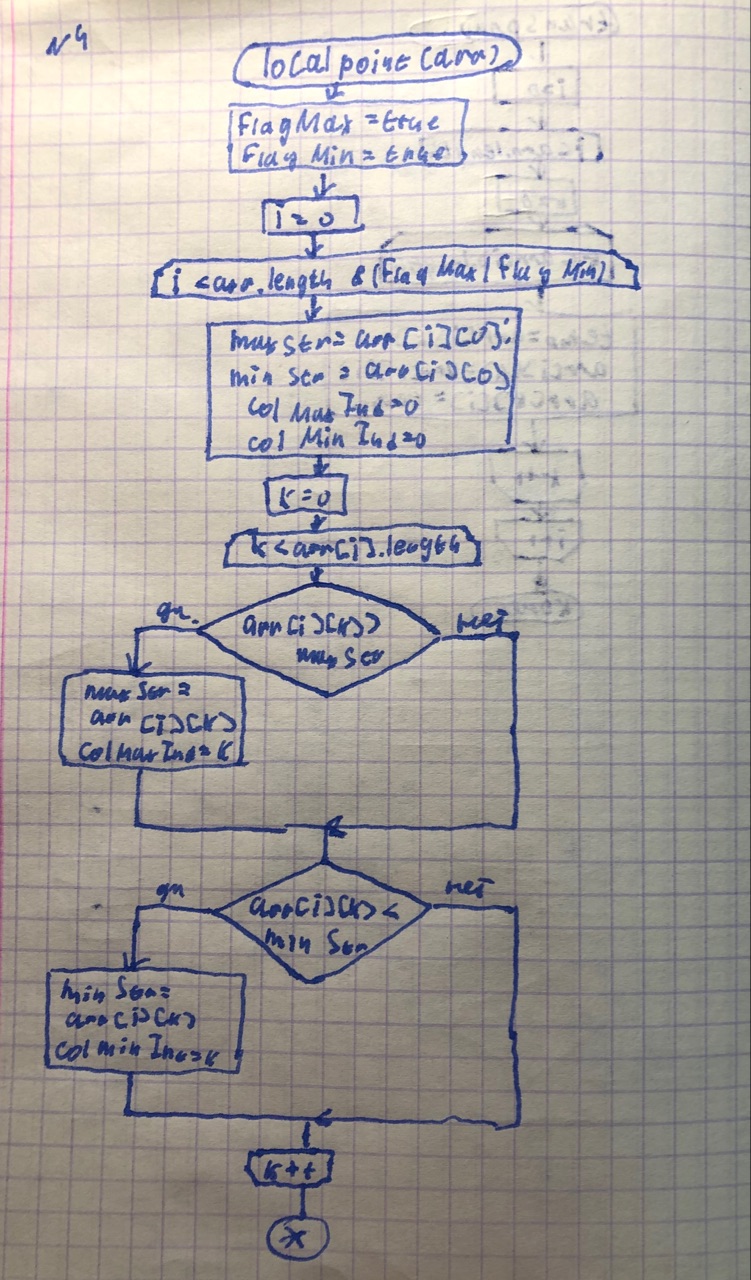 №4
localpoint(arr)
FlagMax = true
Flag Min = true
i = 0
i < arr.length & (Flag Max | Flag Min)
maxStr = arr[i][0];
min Str = arr[i][0]
Col Max Ind = 0
col Min Ind = 0
k = 0
k < arr[i].length
да
arr[i][k] >
max Str
нет
max Str =
arr [i][k]
ColMax Ind = k
да
arr[i][k] <
min Str
нет
min Str =
arr[i][k]
col min Ind = k
k++
*